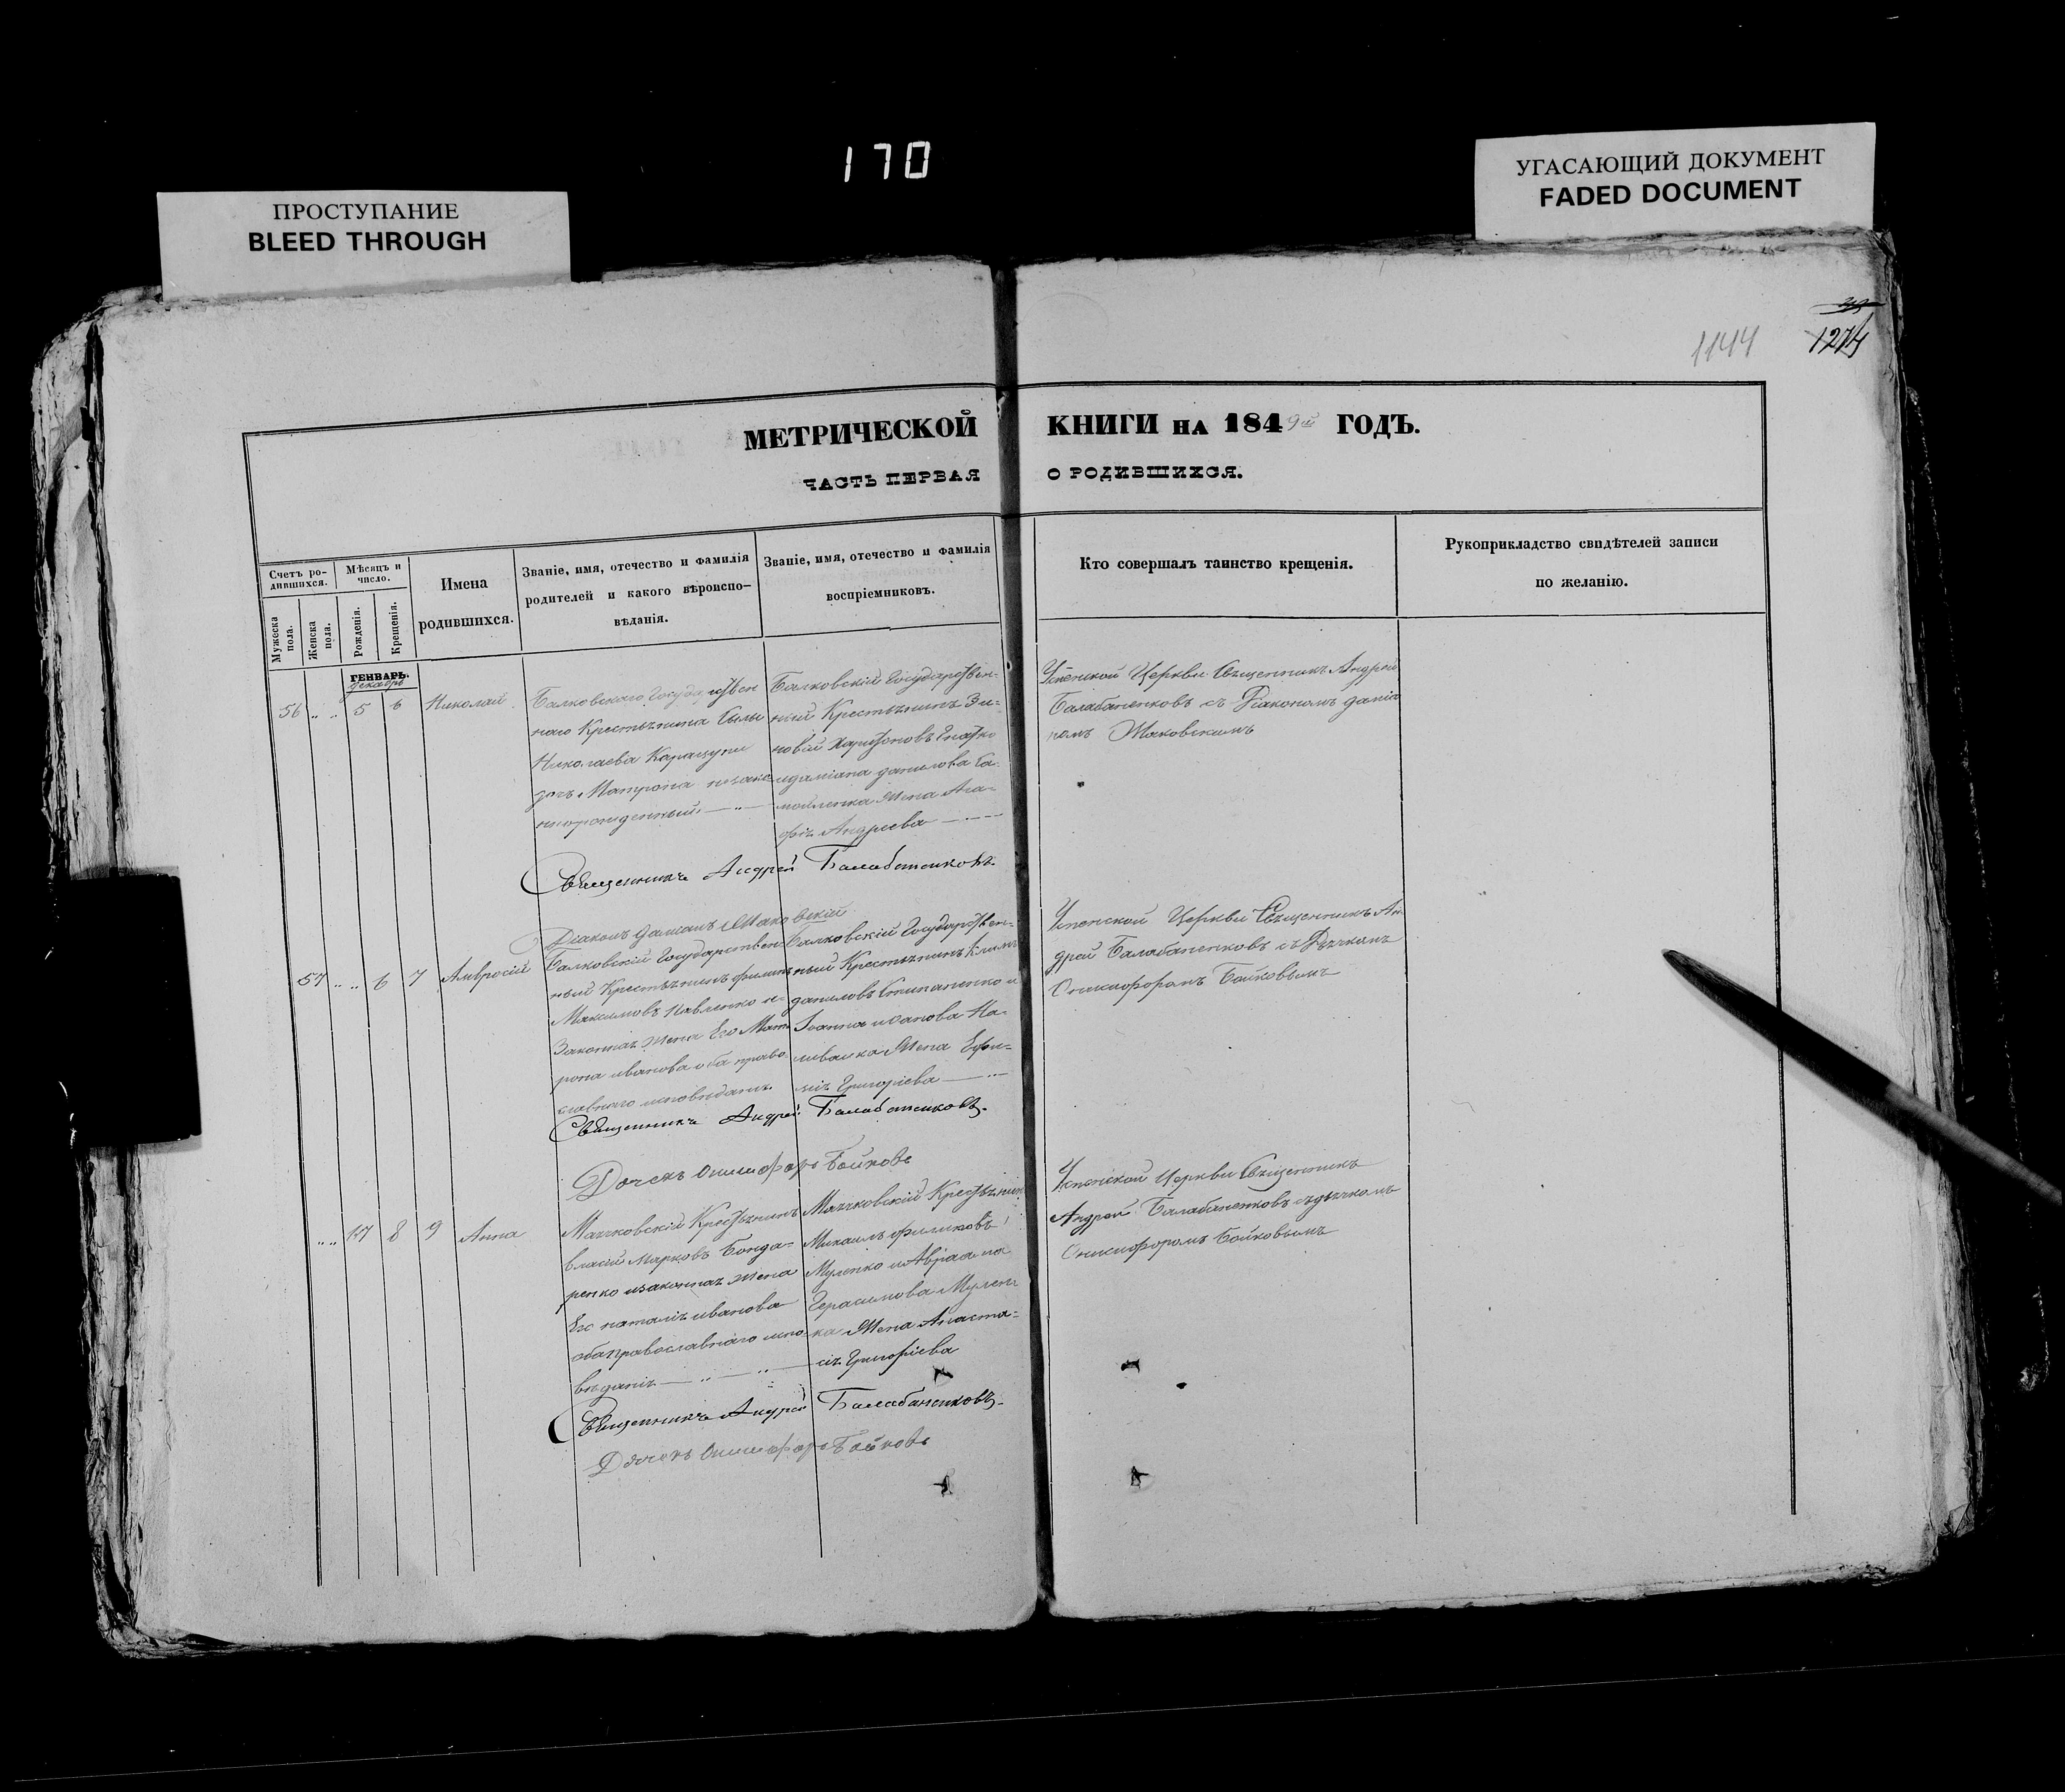 170
ПРОСТУПАНИЕ
BLEED THROUGH
УГАСАЮЩИЙ ДОКУМЕНТ
FADED DOCUMENT
1144
МЕТРИЧЕСКОЙ КНИГИ НА 1849й ГОДЪ.
ЧАСТЬ ПЕРВАЯ О РОДИВШИХСЯ.
Счетъ ро-
дившихся.
Мужеска
пола.
Женска
пола.
Мѣсяцъ и
число.
Рожденія.
Крещенія.
Имена
родившихся.
Званіе, имя, отечество и фамилія
родителей и какого вѣроиспо-
вѣданія.
Званіе, имя, отечество и фамилія
воспріемниковъ.
Кто совершалъ таинство крещенія.
Рукоприкладство свидѣтелей записи
по желанію.
ГЕНВАРЬ.
декабрь
56 5 6 Николай
Балковскаго Государствен
наго Крестьянина
Николаева
дочь Матрона незако
ннорожденный
Балковскій Государствен-
ный Крестьянинъ Зи-
новій
даміана данилова Са-
мойленка Жена Ага-
фія Андреева
Успенской Церкви Священникъ Андрей
Балабаненковъ съ Діакономъ
Маковскимъ
Священникъ Андрей Балабаненковъ
Діаконъ Даміанъ Маковскій
57 6 7 Амвросій
Балковскій Государствен
ный Крестьянинъ филипъ
Максимовъ Павленко и
Законная жена Его Мат
рона иванова оба право
славнаго исповѣданія
Балковскій Государствен-
ный Крестьянинъ Климъ
даниловъ Степаненко и
Іоанна иванова На-
ливайка Жена Ефи-
мія Григоріева
Успенской Церкви Священникъ Ан
дрей Балабаненковъ съ Дьячкомъ
Онисифоромъ Бойковымъ
Священникъ Андрей Балабаненковъ.
Дячекъ Онисифоръ Бойковъ
17 8 9 Анна
Мачковскій Крестьянинъ
власій Марковъ Бонда-
ренко изаконная жена
Его наталія иванова
оба православнаго испо
вѣданія
Мачковскій Крестьянинъ
Михаилъ филиповъ
Муленко и Авраама
Герасимова Мулен
ка Жена Анаста-
сія Григоріева
Успенской Церкви Священникъ
Андрей Балабаненковъ съдьячкомъ
Онисифоромъ Бойковымъ
Священникъ Андрей Балабаненковъ.
Дячекъ Онисифоръ Бойковъ